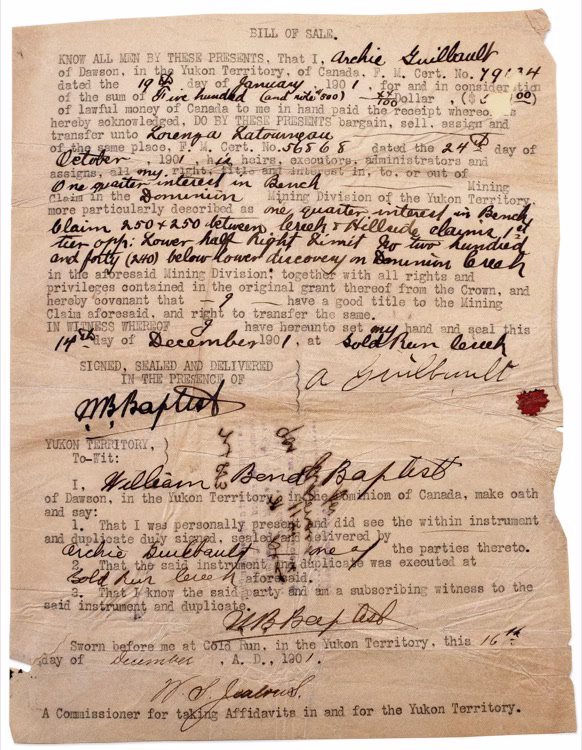 BILL OF SALE.
KNOW ALL MEN BY THESE PRESENTS, That I, Archie Guilbault
of Dawson, in the Yukon Territory, of Canada. F. M. Cert. No.
dated the 19th day of January 1901 for and in consideration
of the sum of Five hundred (and 500) xx/100 Dollar , ($ 00)
of lawful money of Canada to me in hand paid the receipt whereof is
hereby acknowledged, DO BY THESE PRESENTS bargain, sell, assign and
transfer unto Lorenza Latourneau
of the same place, F. M. Cert. No. 56868 dated the 24th day of
October , 1901 , his heirs, executors, administrators and
assigns, all my right, title and interest in, to, or out of
One quarter interest in Bench Mining
Claim in the Dominion Mining Division of the Yukon Territory,
more particularly described as one quarter interest in Bench
Claim 250 x 250 between Creek & Hillside claims, 1st
tier opp: Lower half Right Limit No two hundred
and forty (240) below lower discovery on Dominion Creek
in the aforesaid Mining Division: together with all rights and
privileges contained in the original grant thereof from the Crown, and
hereby covenant that - I - have a good title to the Mining
Claim aforesaid, and right to transfer the same.
IN WITNESS WHEREOF I have hereunto set my hand and seal this
14th day of December 1901, at Gold Run Creek
SIGNED, SEALED AND DELIVERED
IN THE PRESENCE OF
A Guilbault
W.B. Baptist
YUKON TERRITORY,
To-Wit:
I, William Bench Baptist
of Dawson, in the Yukon Territory, in the Dominiom of Canada, make oath
and say:
1. That I was personally present and did see the within instrument
and duplicate duly signed, sealed and delivered by
Archie Guilbault one of the parties thereto.
2. That the said instrument and duplicate was executed at
Gold Run Creek aforesaid.
3. That I know the said party and am a subscribing witness to the
said instrument and duplicate.
W B Baptist
Sworn before me at Gold Run, in the Yukon Territory, this 16th
day of December , A. D., 1901.
A Commissioner for taking Affidavits in and for the Yukon Territory.